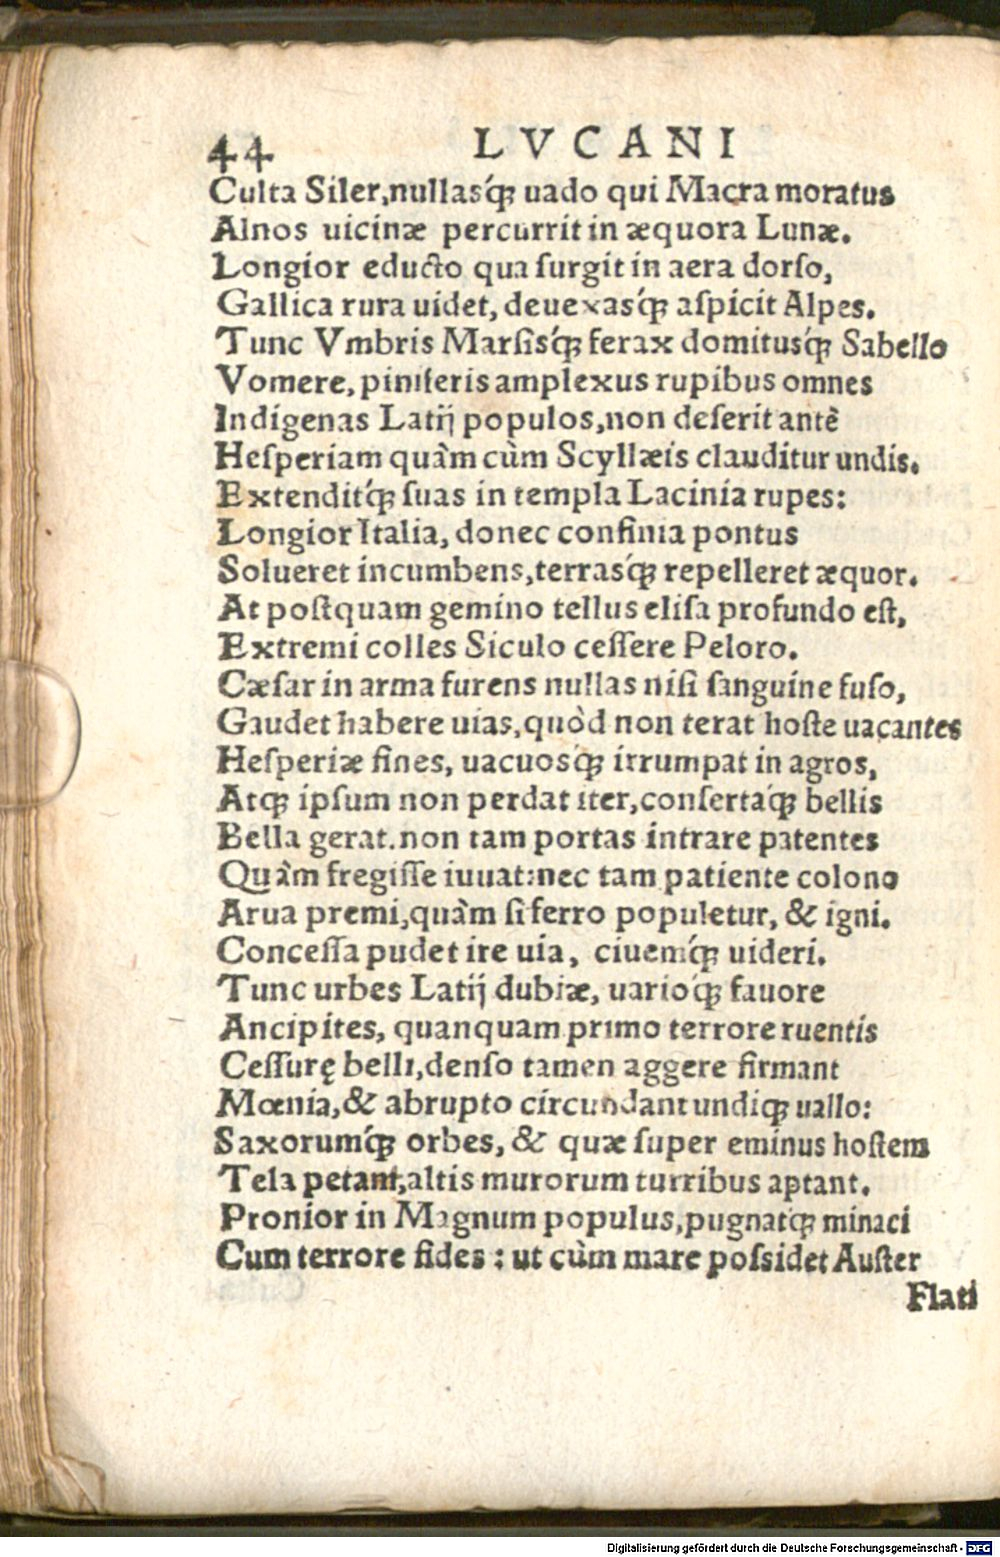 44 LVCANI
Culta Siler, nullasq́; uado qui Macra moratus
Alnos uicinæ percurrit in æquora Lunæ.
Longior educto qua ſurgit in aera dorſo,
Gallica rura uidet, deuexasq́; aſpicit Alpes.
Tunc Vmbris Marſisq́; ferax domitusq́; Sabello
Vomere, piniferis amplexus rupibus omnes
Indigenas Latij populos, non deſerit antè
Heſperiam quàm cùm Scyllæis clauditur undis.
Extenditq́; ſuas in templa Lacinia rupes:
Longior Italia, donec confinia pontus
Solueret incumbens, terrasq́; repelleret æquor.
At poſtquam gemino tellus eliſa profundo eſt,
Extremi colles Siculo ceſſere Peloro.
Cæſar in arma furens nullas niſi ſanguine fuſo,
Gaudet habere uias, quòd non terat hoſte uacantes
Heſperiæ fines, uacuosq; irrumpat in agros,
Atq; ipſum non perdat iter, conſertaq́; bellis
Bella gerat. non tam portas intrare patentes
Quàm fregiſſe iuuat: nec tam patiente colono
Arua premi, quàm ſi ferro populetur, & igni.
Conceſſa pudet ire uia, ciuemq́; uideri.
Tunc urbes Latij dubiæ, uarioq́; fauore
Ancipites, quanquam primo terrore ruentis
Ceſſurę belli, denſo tamen aggere firmant
Mœnia, & abrupto circundant undiq; uallo:
Saxorumq́; orbes, & quæ ſuper eminus hoſtem
Tela petant, altis murorum turribus aptant.
Pronior in Magnum populus, pugnatq; minaci
Cum terrore fides : ut cùm mare poſsidet Auſter
Flati
Digitalisierung gefördert durch die Deutsche Forschungsgemeinschaft - DFG